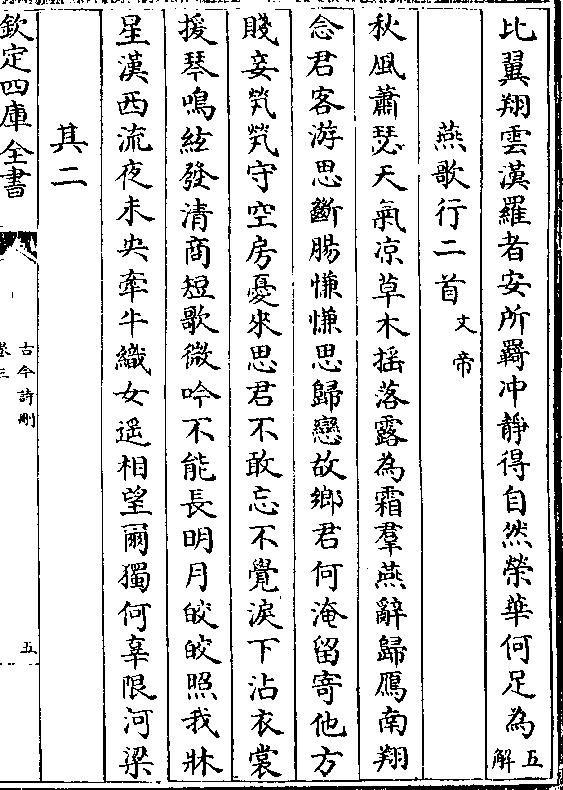 比翼翔雲漢羅者安所羇冲靜得自然榮華何足為五解
燕歌行二首文帝
秋風蕭瑟天氣凉草木揺落露為霜羣燕辭歸鴈南翔
念君客游思斷腸慊慊思歸戀故鄉君何淹留寄他方
賤妾煢煢守空房憂來思君不敢忘不覺淚下沾衣裳
援琴鳴絃發清商短歌微吟不能長明月皎皎照我牀
星漢西流夜未央牽牛織女遥相望爾獨何辜限河梁
其二
欽定四庫全書
古今詩刪
卷三
五